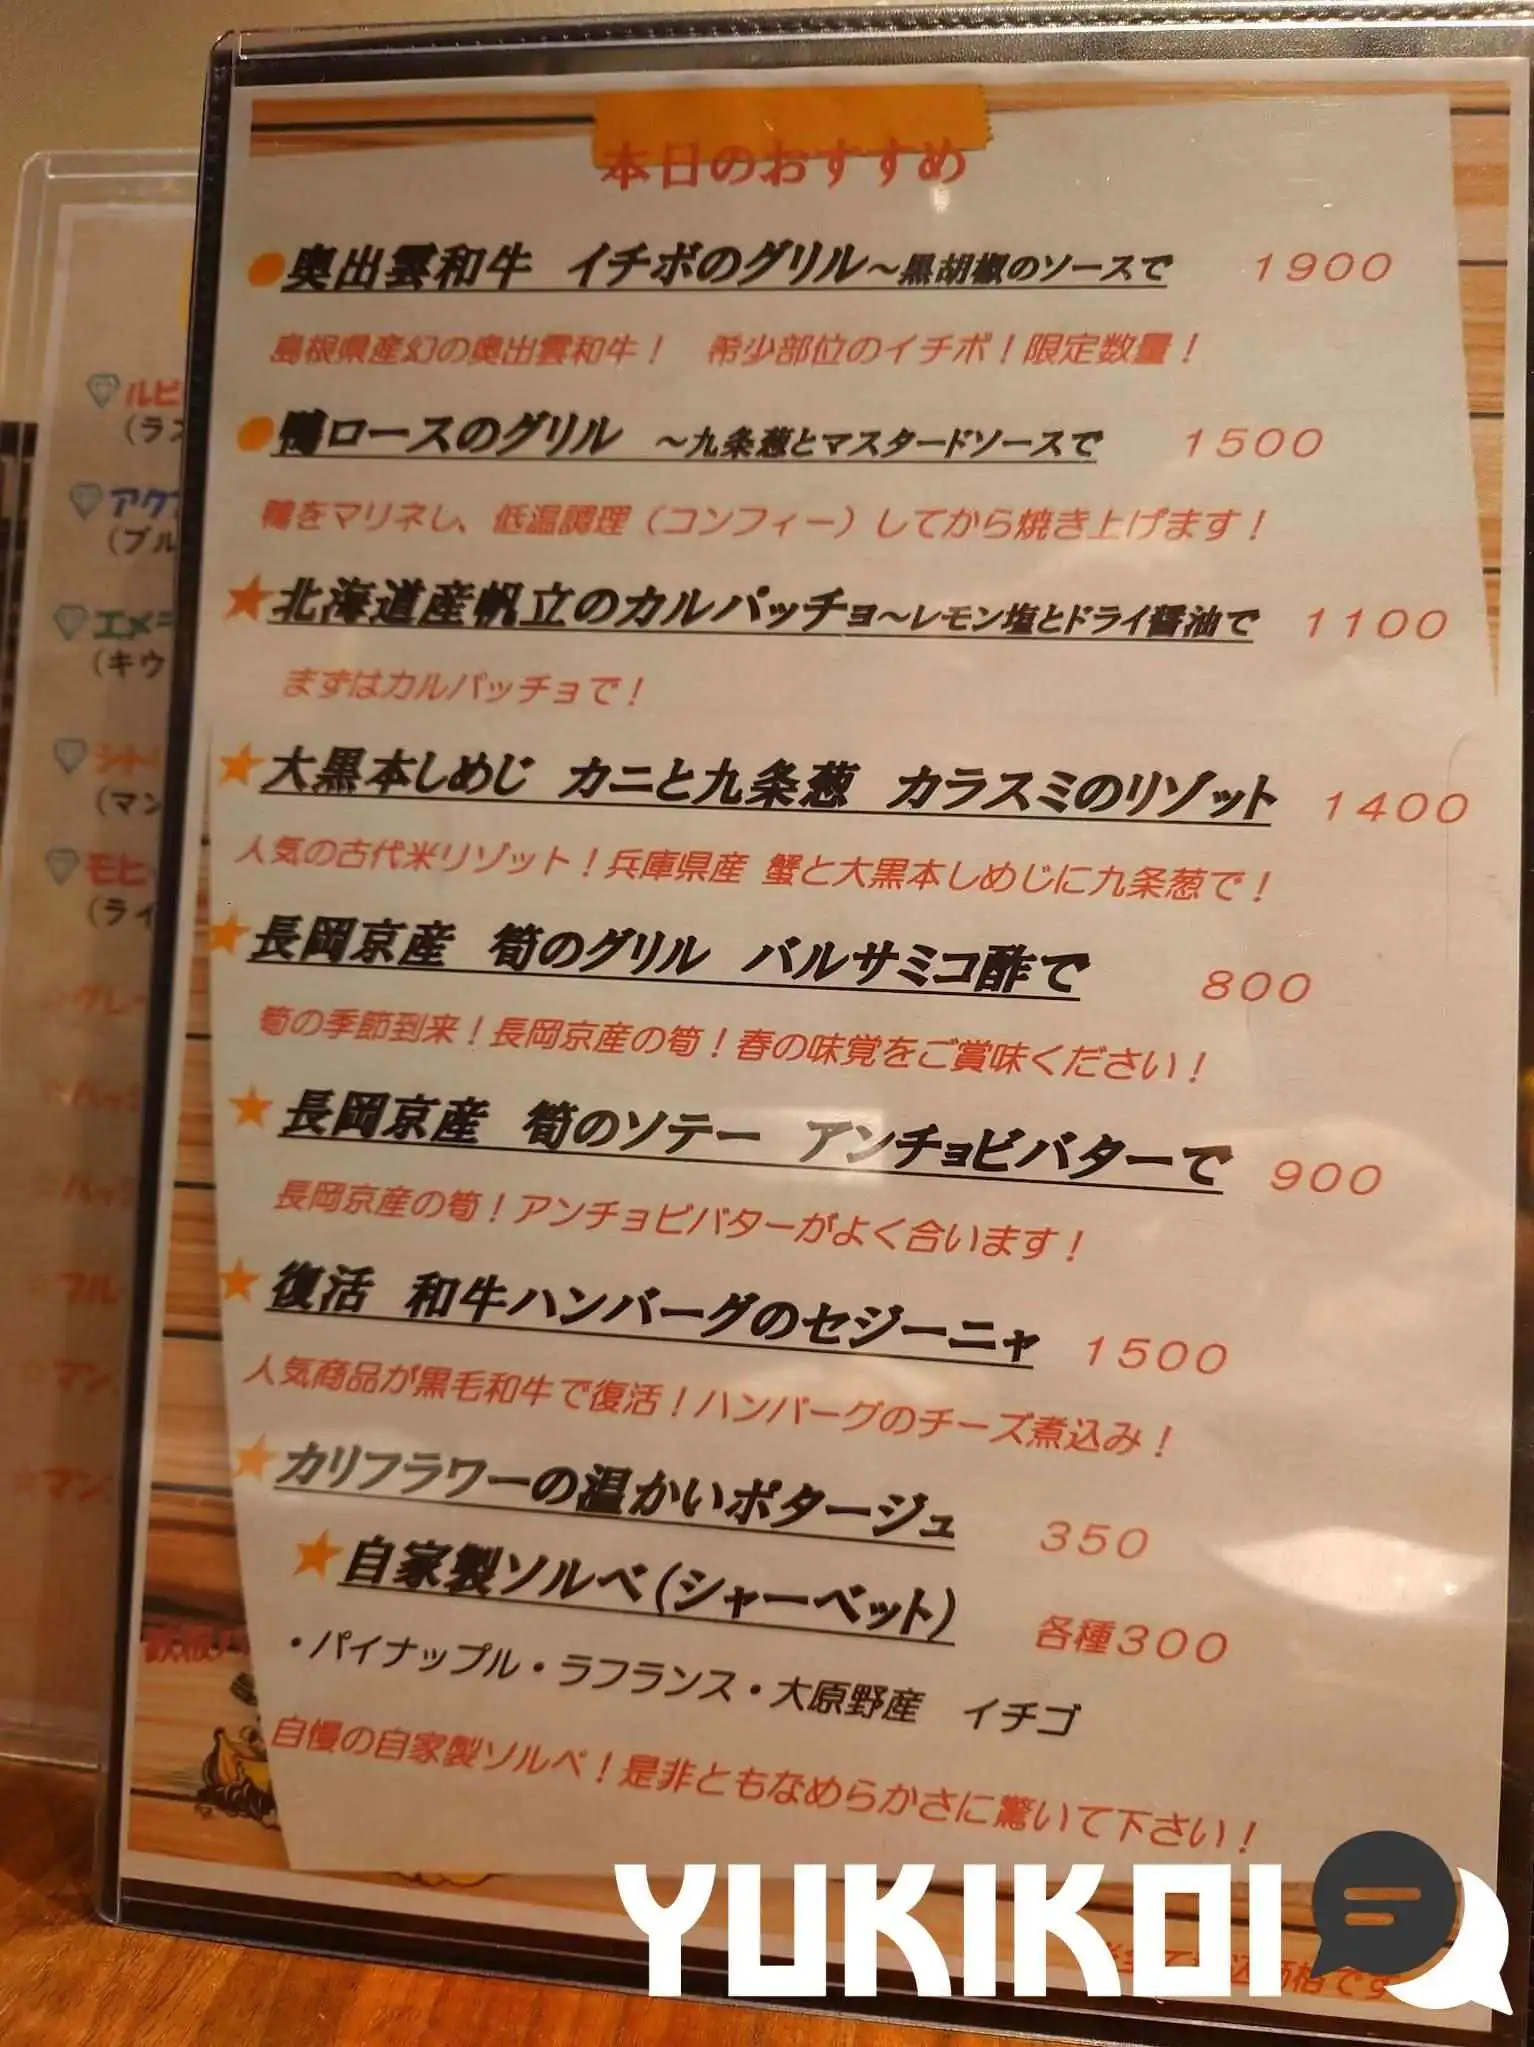 本日のおすすめ
●奥出雲和牛　イチボのグリル～黒胡椒のソースで　1900
島根県産幻の奥出雲和牛！　希少部位のイチボ！限定数量！
●鴨ロースのグリル　～九条葱とマスタードソースで　1500
鴨をマリネし、低温調理（コンフィー）してから焼き上げます！
★北海道産帆立のカルパッチョ～レモン塩とドライ醤油で　1100
まずはカルパッチョで！
★大黒本しめじ　カニと九条葱　カラスミのリゾット　1400
人気の古代米リゾット！兵庫県産 蟹と大黒本しめじに九条葱で！
★長岡京産　筍のグリル　バルサミコ酢で　800
筍の季節到来！長岡京産の筍！春の味覚をご賞味ください！
★長岡京産　筍のソテー　アンチョビバターで　900
長岡京産の筍！アンチョビバターがよく合います！
★復活　和牛ハンバーグのセジーニャ　1500
人気商品が黒毛和牛で復活！ハンバーグのチーズ煮込み！
★カリフラワーの温かいポタージュ　350
★自家製ソルベ（シャーベット）　各種300
・パイナップル・ラフランス・大原野産　イチゴ
自慢の自家製ソルベ！是非ともなめらかさに驚いて下さい！
YUKIKOI